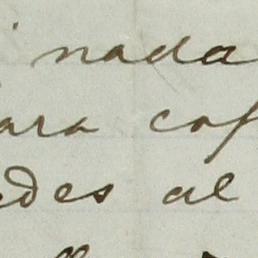 nada
ara cof
edes al